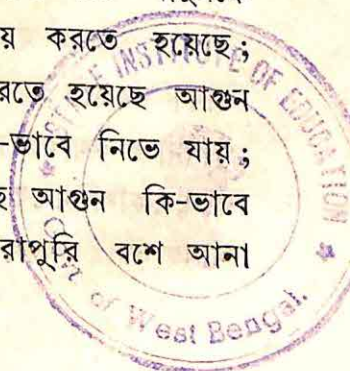 য় করতে হয়েছে;
রতে হয়েছে আগুন
-ভাবে নিভে যায়;
আগুন কি-ভাবে
রাপুরি বশে আনা
STATE INSTITUTE OF EDUCATION
of West Bengal.